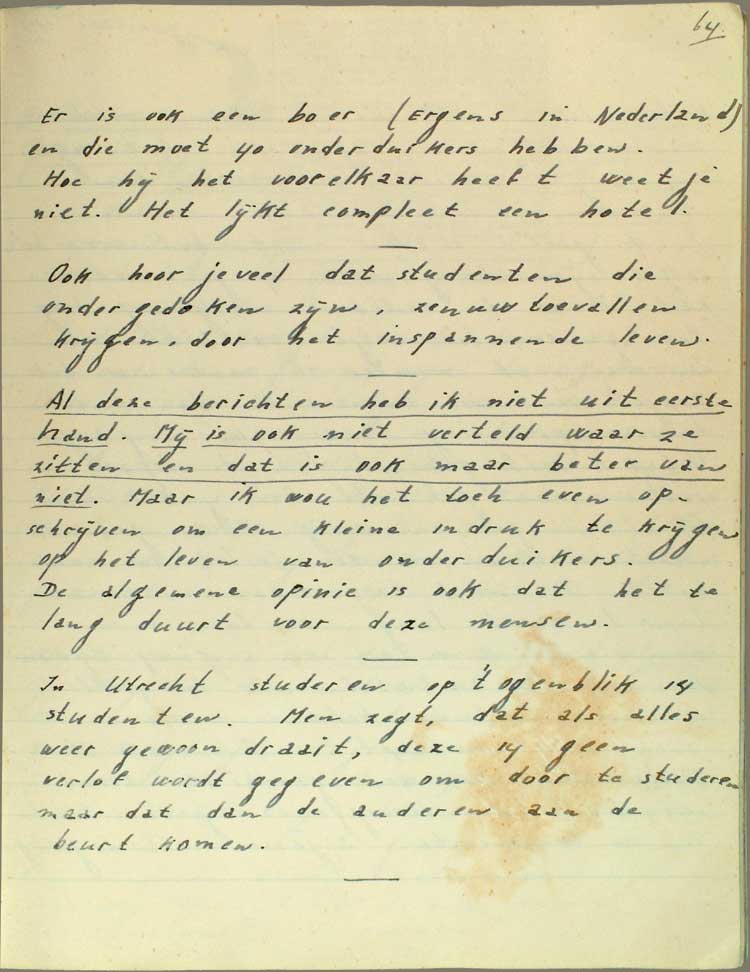 64
Er is ook een boer (Ergens in Nederland)
en die moet 40 onderduikers hebben.
Hoe hij het voorelkaar heeft weet je
niet. Het lijkt compleet een hotel.
Ook hoor je veel dat studenten die
ondergedoken zijn, zenuwtoevallen
krijgen, door het inspannende leven.
Al deze berichten heb ik niet uit eerste
hand. Mij is ook niet verteld waar ze
zitten en dat is ook maar beter van
niet. Maar ik wou het toch even op-
schrijven om een kleine indruk te krijgen
op het leven van onderduikers.
De algemene opinie is ook dat het te
lang duurt voor deze mensen.
In Utrecht studeren op 't ogenblik 14
studenten. Men zegt, dat als alles
weer gewoon draait, deze 14 geen
verlof wordt gegeven om door te studeren
maar dat dan de anderen aan de
beurt komen.